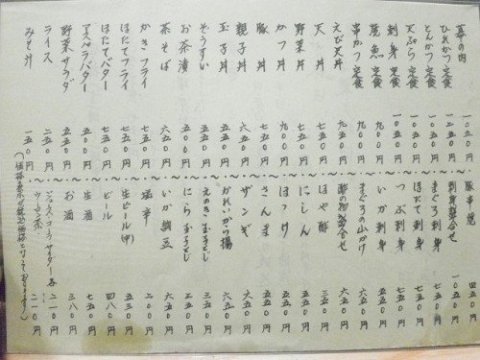 幕の内 一〇五〇円
ひれかつ定食 一二五〇円
とんかつ定食 一〇五〇円
天ぷら定食 一〇五〇円
刺身定食 一〇五〇円
焼魚定食 九〇〇円
串かつ定食 九〇〇円
えび天丼
天丼 七五〇円
野菜丼 七五〇円
かつ丼 九〇〇円
豚丼 七五〇円
親子丼 六五〇円
玉子丼 五五〇円
ぞうすい 五五〇円
お茶漬 五五〇円
茶そば 六五〇円
かきフライ 七五〇円
ほたてフライ 七五〇円
ほたてバター 七五〇円
アスパラバター 五〇〇円
野菜サラダ 五五〇円
ライス 二五〇円
みそ汁 一五〇円
豚串焼 四五〇円
刺身盛合せ 一〇五〇円
まぐろ刺身 七五〇円
ほたて刺身 七五〇円
つぶ刺身 七五〇円
いか刺身 六五〇円
まぐろの山かけ 六五〇円
酢の物盛合せ 六五〇円
ほや酢 五五〇円
にしん 五五〇円
ほっけ 五五〇円
さんま 五五〇円
ザンギ 六五〇円
かれいから揚 六五〇円
えのき玉子とじ 五三〇円
にら玉子とじ 五三〇円
いか納豆 六五〇円
塩辛 二〇〇円
生ビール(中) 五五〇円
ビール 四八〇円
生酒 七五〇円
お酒 三八〇円
ジュース・コーラ・サイダー各 二一〇円
ウーロン茶 二一〇円